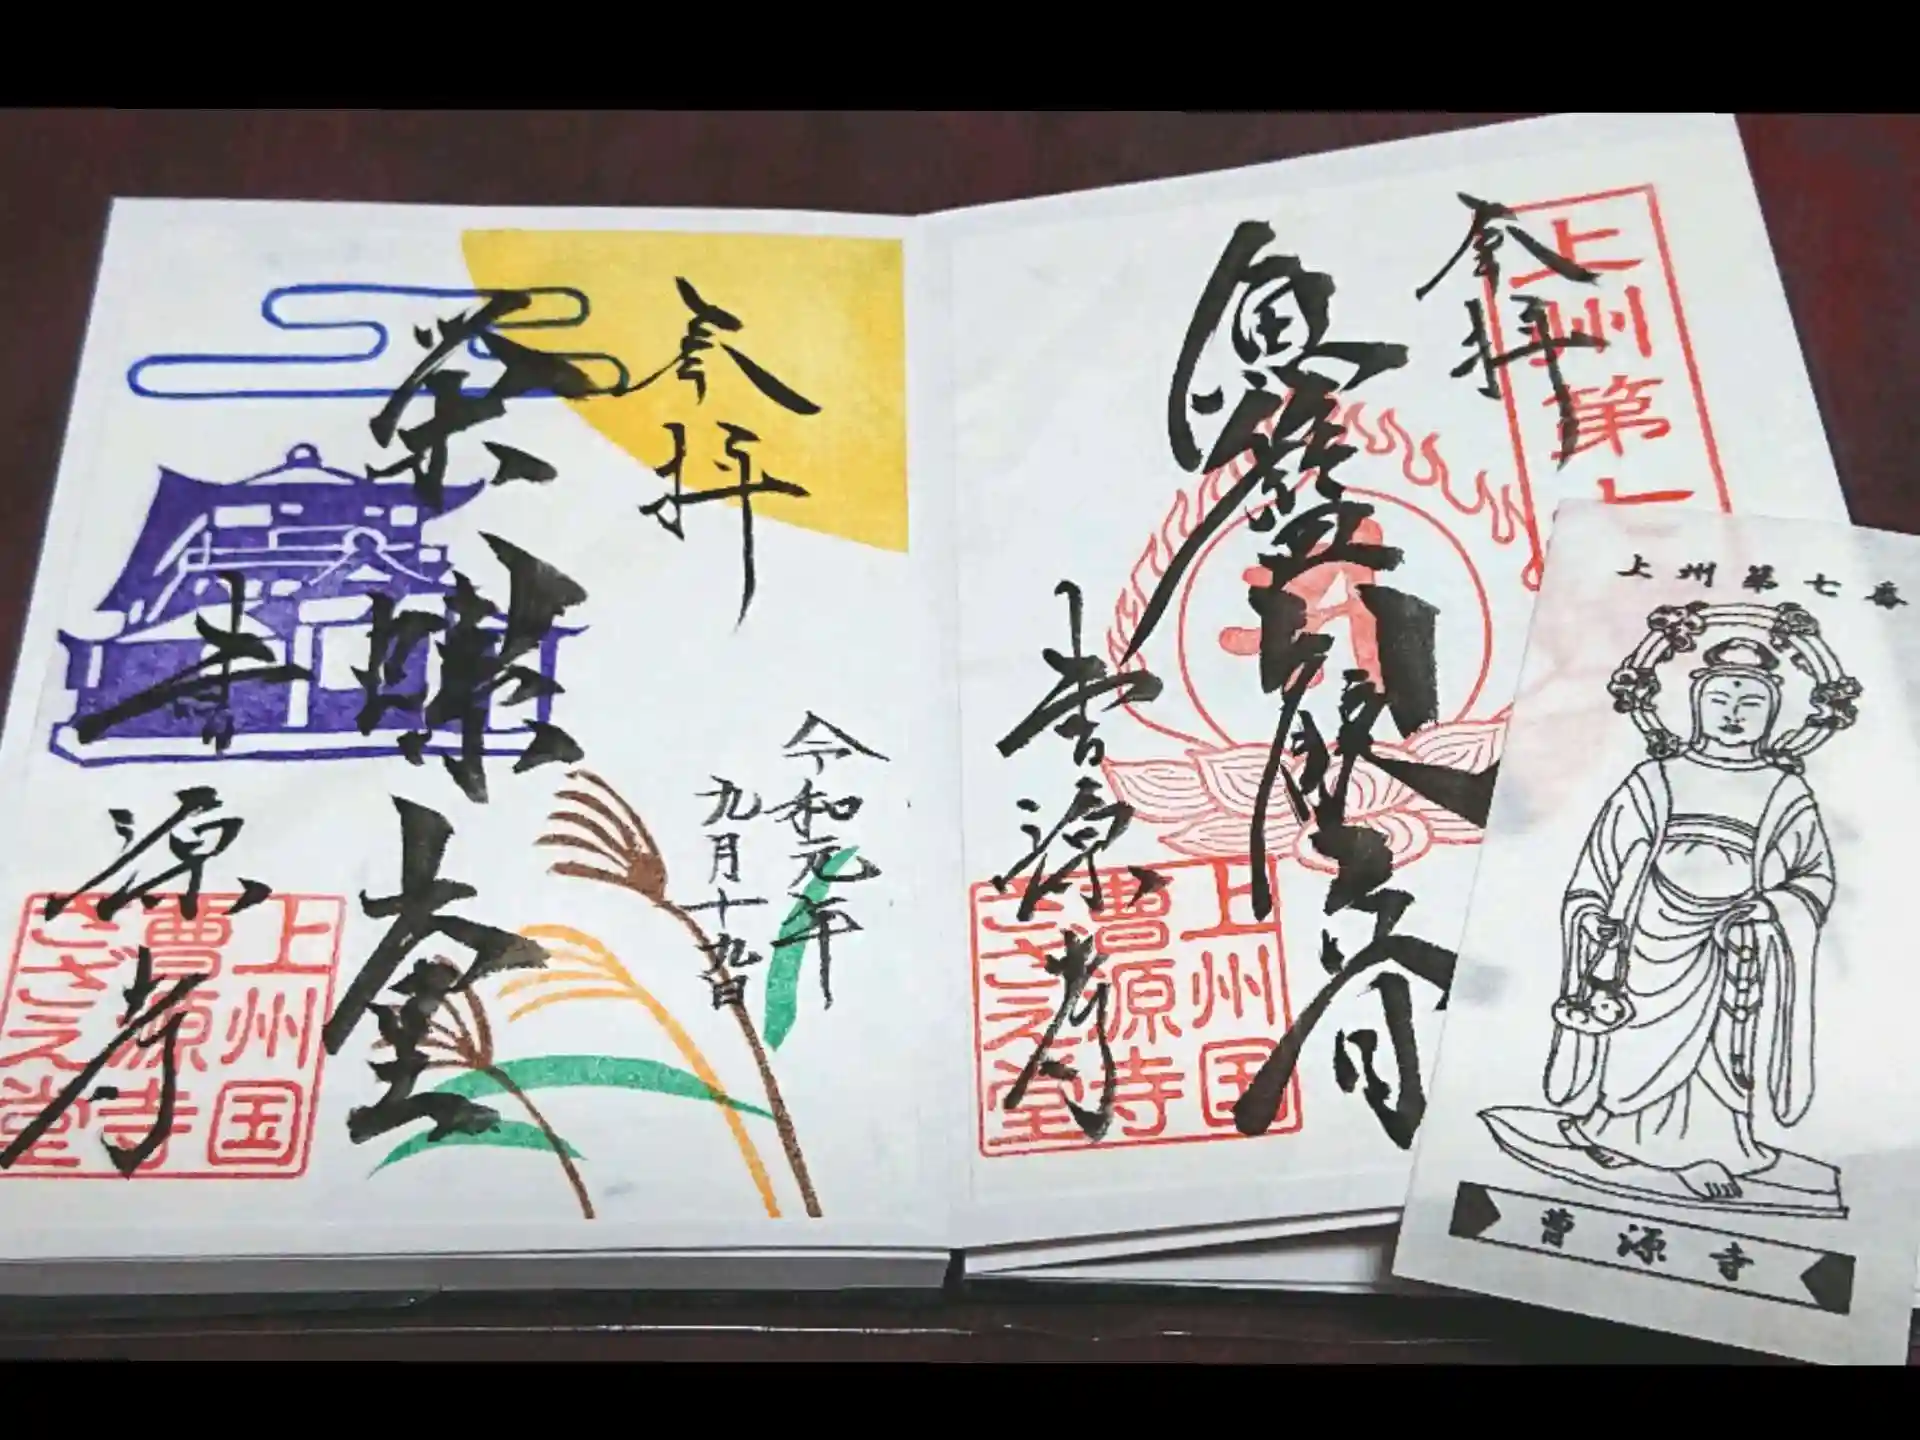 上州第七
奉拝
魚籃観世音
曹源寺
上州国
曹源寺
さざえ堂
奉拝
令和元年
九月十九日
栄螺堂
曹源寺
上州国
曹源寺
さざえ堂
上州第七番
曹源寺